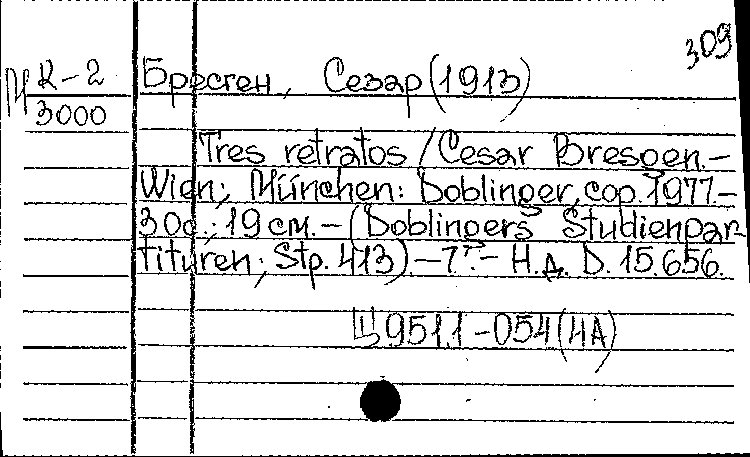 309
М К-2 Бресген, Сезар (1913)
3000
Tres retratos / Cesar Bresgen.-
Wien; München: Doblinger, cop. 1977-
30с.; 19 см. - (Doblingers Studienpar-
tituren; Stp. 413) - Н.д. D. 15.656.
Щ951.1-054(4А)